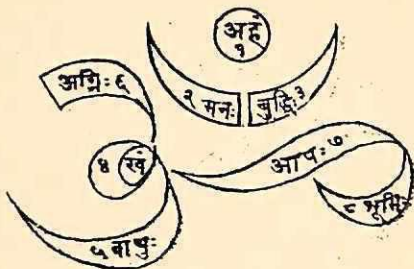 अहं
१
२ मनः
बुद्धिः ३
अग्निः ६
४ खं
आपः ७
८ भूमिः
५ वायुः